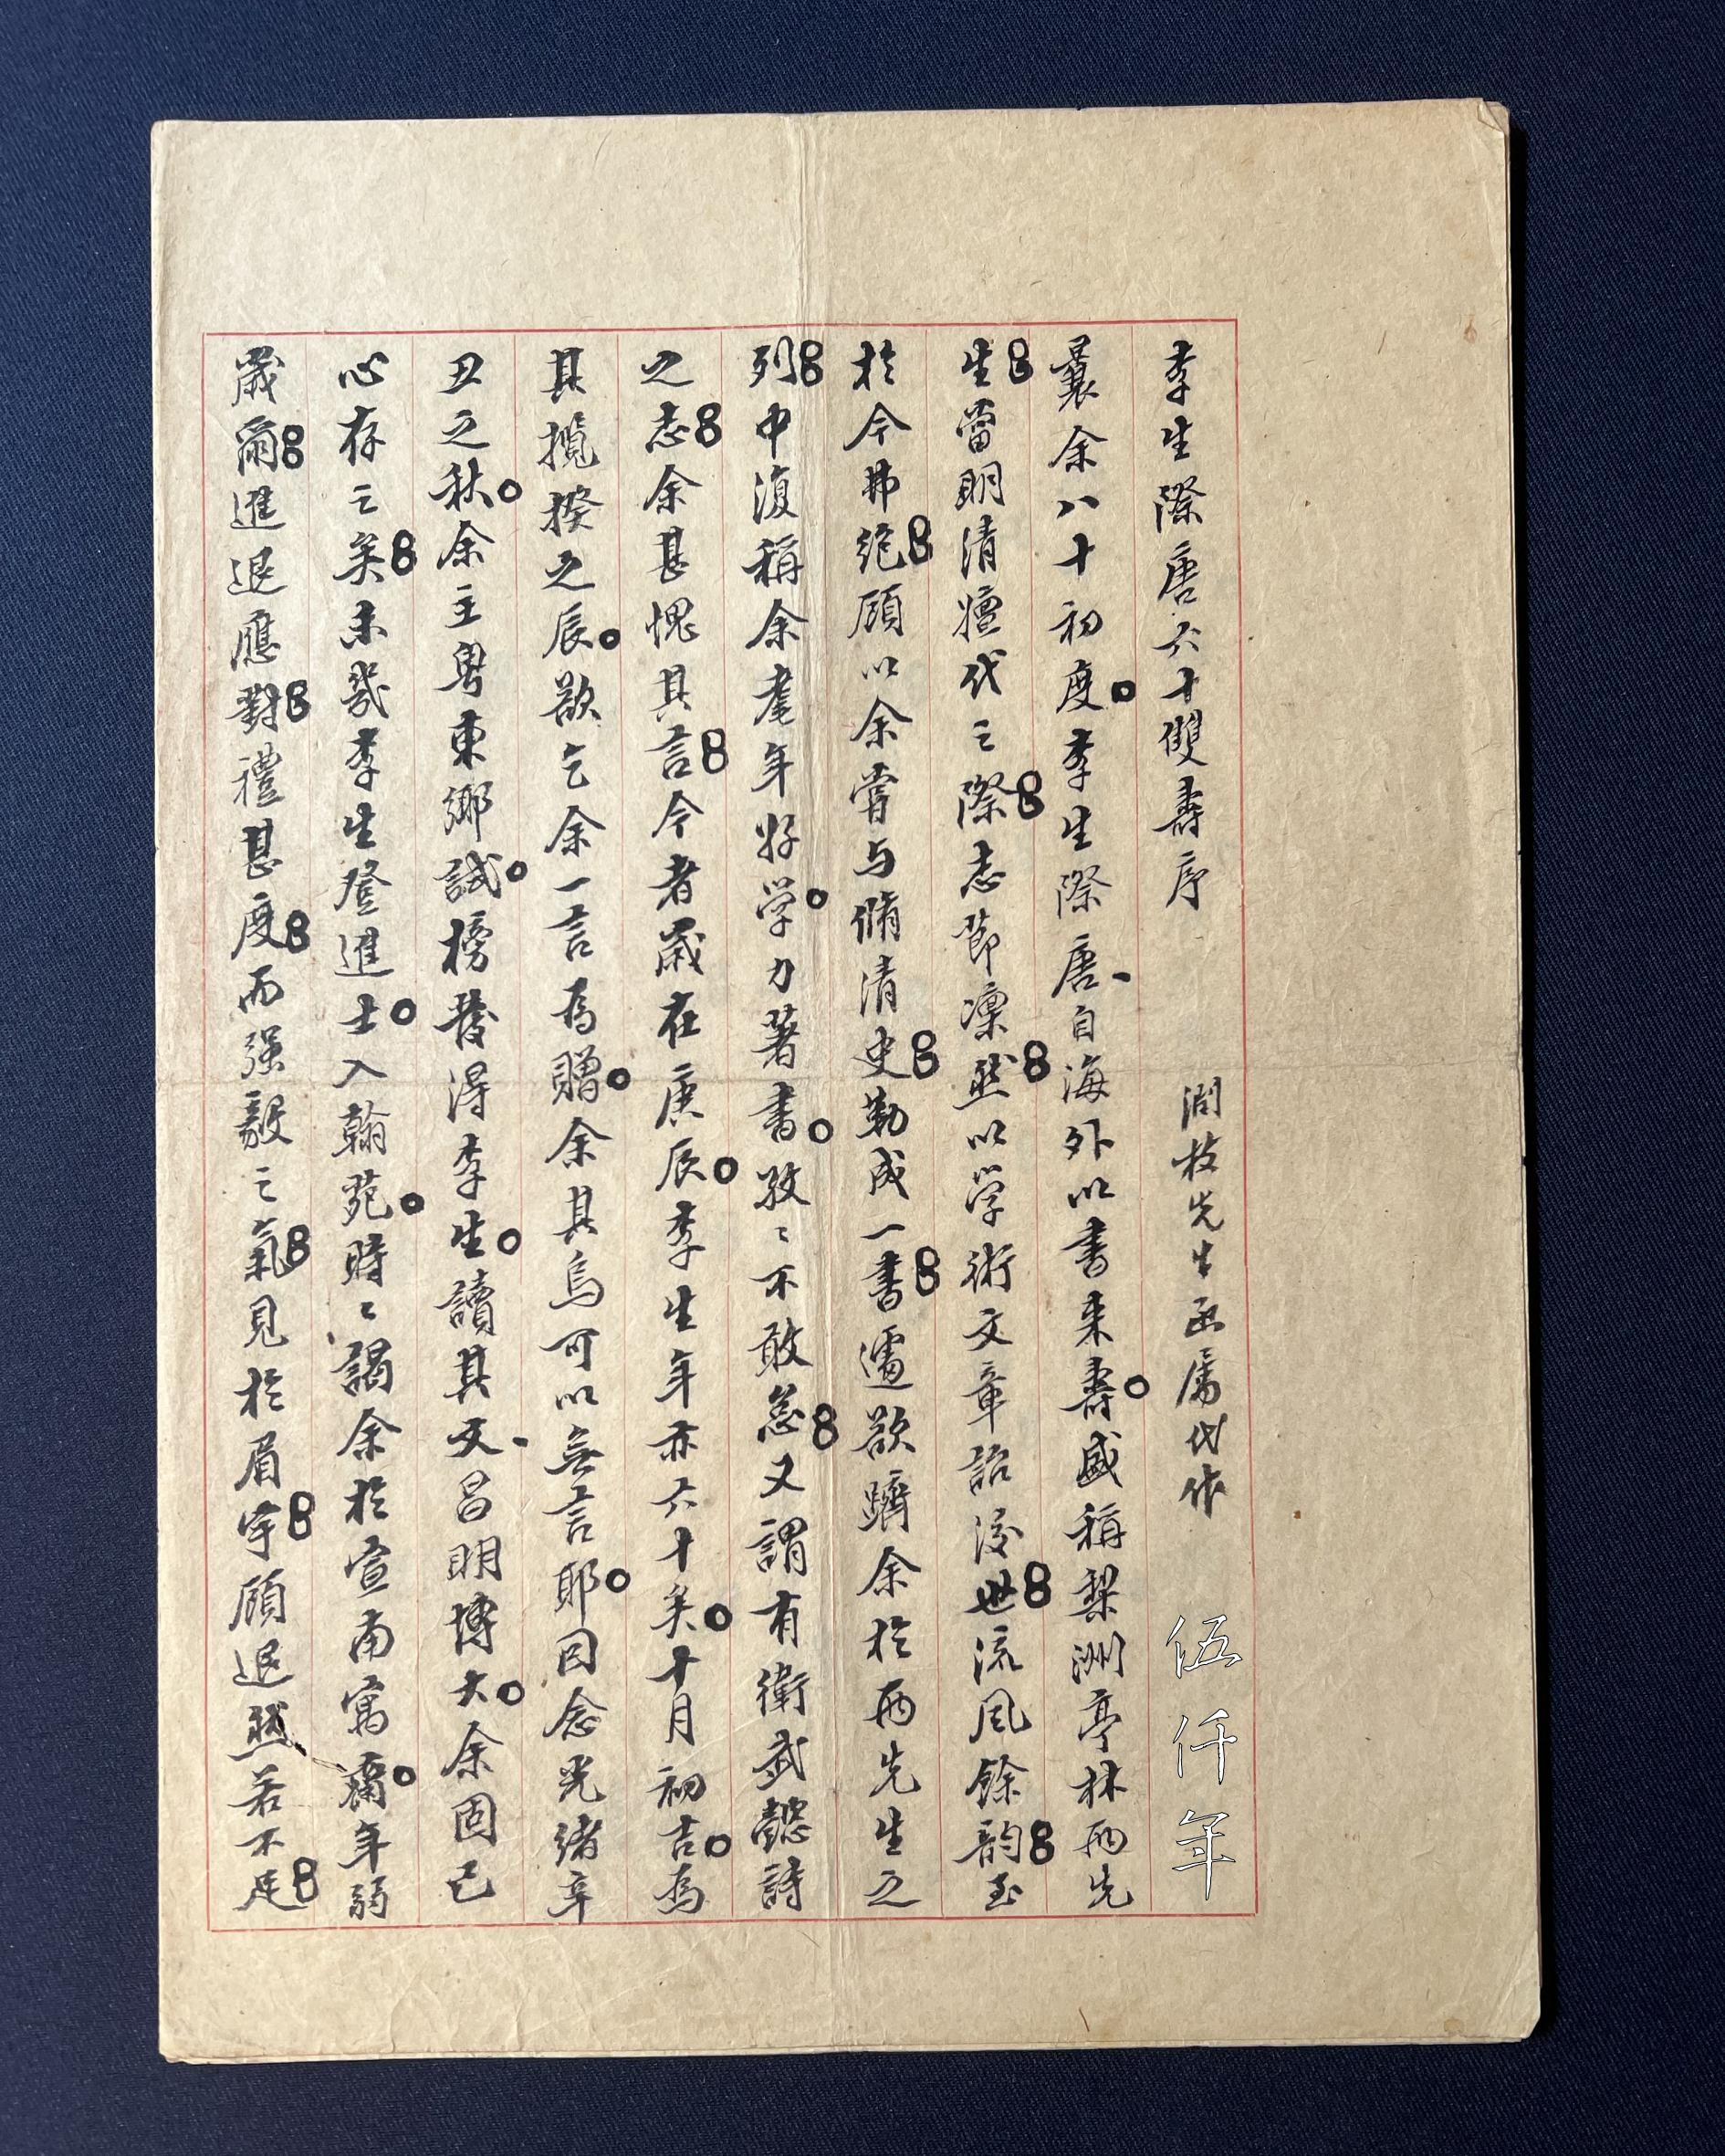 李生際唐六十雙壽序
潤枝先生函屬代作
伍仟年
曩余八十初度李生際唐自海外以書来壽盛稱梨洲亭林兩先
生當明清嬗代之際志節凜然以学術文章詒後世流風餘韵至
於今弗絶顧以余嘗与脩清史勒成一書遽欲躋余於兩先生之
列中復稱余耄年好学力著書孜〻不敢怠又謂有衛武懿詩
之志余甚愧其言今者歲在庚辰李生年亦六十矣十月初吉為
其攬揆之辰欲乞余一言為贈余其烏可以無言耶因念光緒辛
丑之秋余主粤東鄉試榜發得李生讀其文昌明博大余固已
心存之矣未幾李生登進士入翰苑時〻謁余於宣南寓齋年弱
歲爾進退應對禮甚度而强毅之氣見於眉宇顧退然若不足